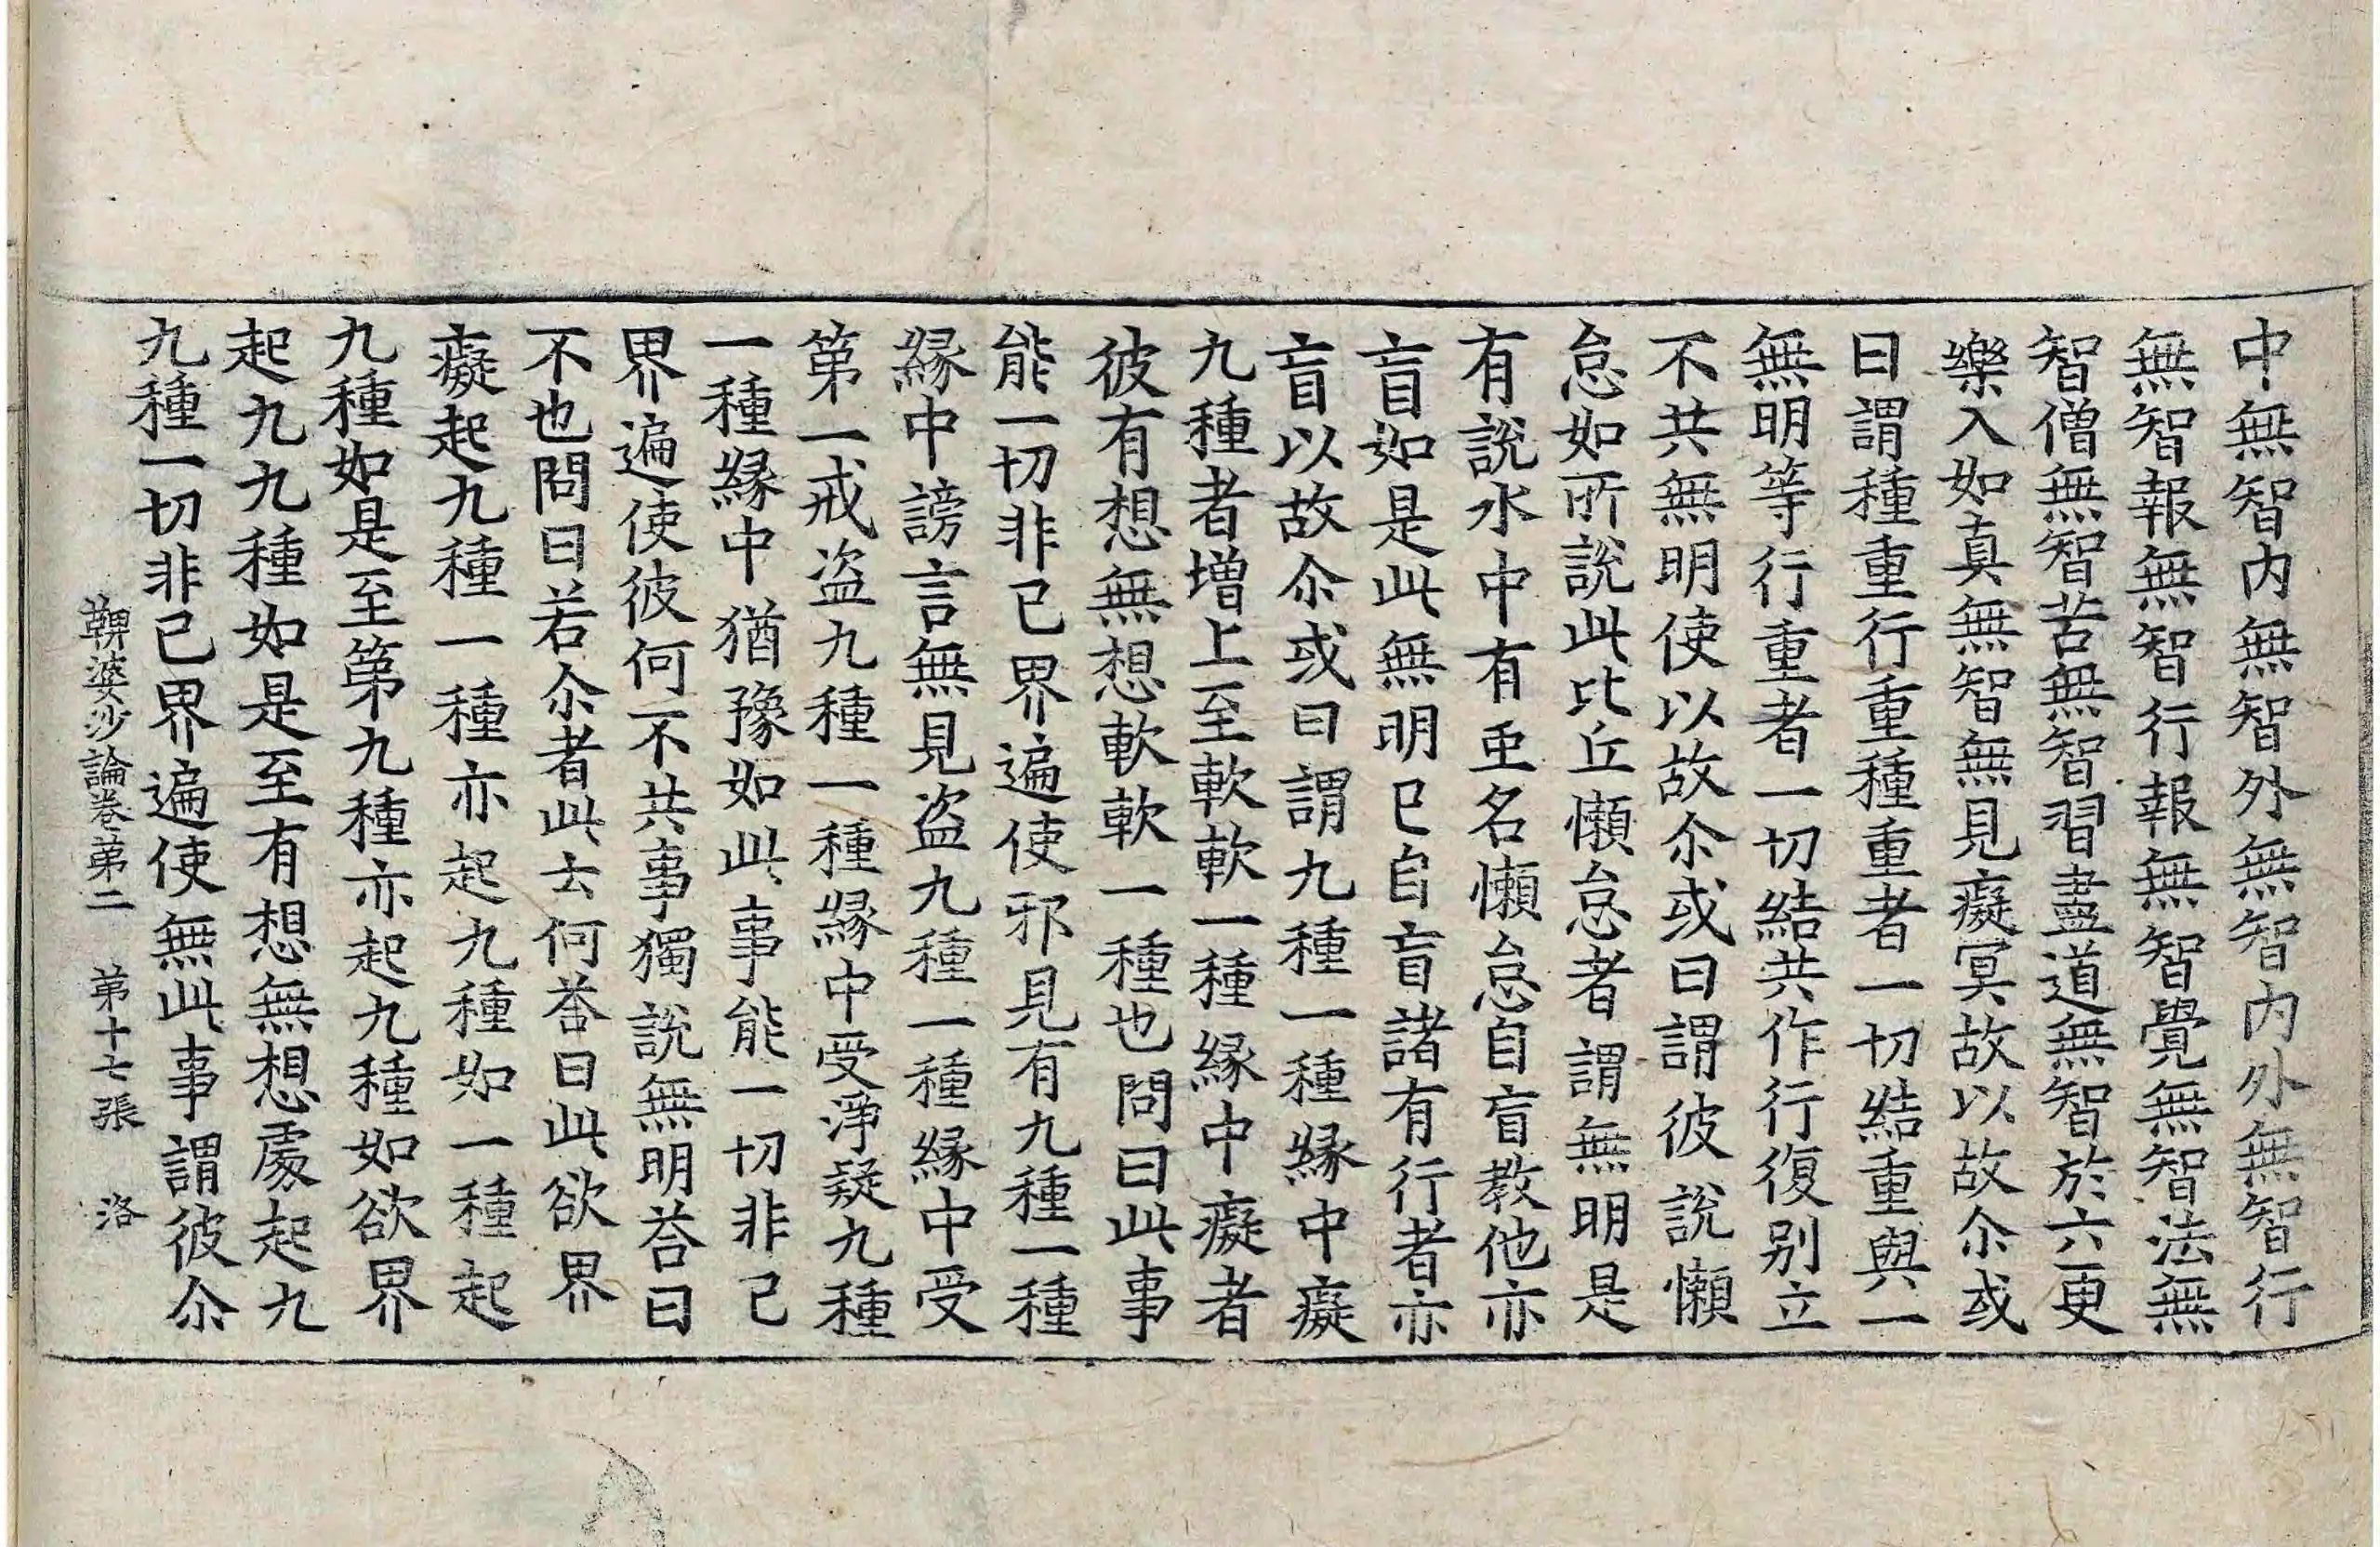 中無智内無智外無智内外無智行
無智報無智行報無智覺無智法無
智僧無智苦無智習盡道無智於六更
樂入如真無智無見癡冥故以故尒或
曰謂種重行重種重者一切結重與一
無明等行重者一切結共作行復别立
不共無明使以故尒或曰謂彼說懶
怠如所說此比丘懶怠者謂無明是
有說水中有䖝名懶怠自盲教他亦
盲如是此無明已自盲盲諸有行者亦
盲以故尒或曰謂九種一種縁中癡
九種者增上至軟軟一種縁中癡者
彼有想無想軟軟一種也問曰此事
能一切非已界遍使邪見有九種一種
縁中謗言無見盗九種一種縁中受
第一戒盗九種一種縁中受淨疑九種
一種縁中猶豫如此事能一切非已
界遍使彼何不共事獨說無明荅曰
不也問曰若尒者此云何荅曰此欲界
癡起九種一種亦起九種如一種起
九種如是至第九種亦起九種如欲界
起九九種如是至有想無想處起九
九種一切非已界遍使無此事謂彼尒
鞞婆沙論卷第二 第十七張 洛